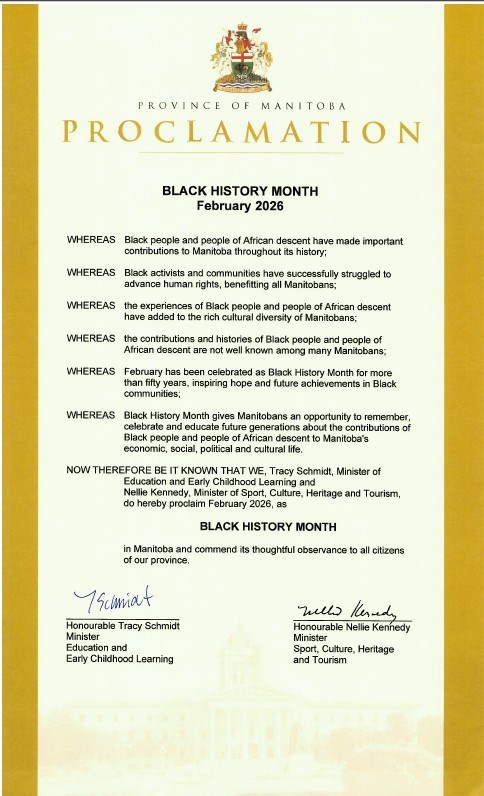 PROVINCE OF MANITOBA
PROCLAMATION
BLACK HISTORY MONTH
February 2026
WHEREAS Black people and people of African descent have made important
contributions to Manitoba throughout its history;
WHEREAS Black activists and communities have successfully struggled to
advance human rights, benefitting all Manitobans;
WHEREAS the experiences of Black people and people of African descent
have added to the rich cultural diversity of Manitobans;
WHEREAS the contributions and histories of Black people and people of
African descent are not well known among many Manitobans;
WHEREAS February has been celebrated as Black History Month for more
than fifty years, inspiring hope and future achievements in Black
communities;
WHEREAS Black History Month gives Manitobans an opportunity to remember,
celebrate and educate future generations about the contributions of
Black people and people of African descent to Manitoba's
economic, social, political and cultural life.
NOW THEREFORE BE IT KNOWN THAT WE, Tracy Schmidt, Minister of
Education and Early Childhood Learning and
Nellie Kennedy, Minister of Sport, Culture, Heritage and Tourism,
do hereby proclaim February 2026, as
BLACK HISTORY MONTH
in Manitoba and commend its thoughtful observance to all citizens
of our province.
TSchmidt
Honourable Tracy Schmidt
Minister
Education and
Early Childhood Learning
Nellie Kennedy
Honourable Nellie Kennedy
Minister
Sport, Culture, Heritage
and Tourism